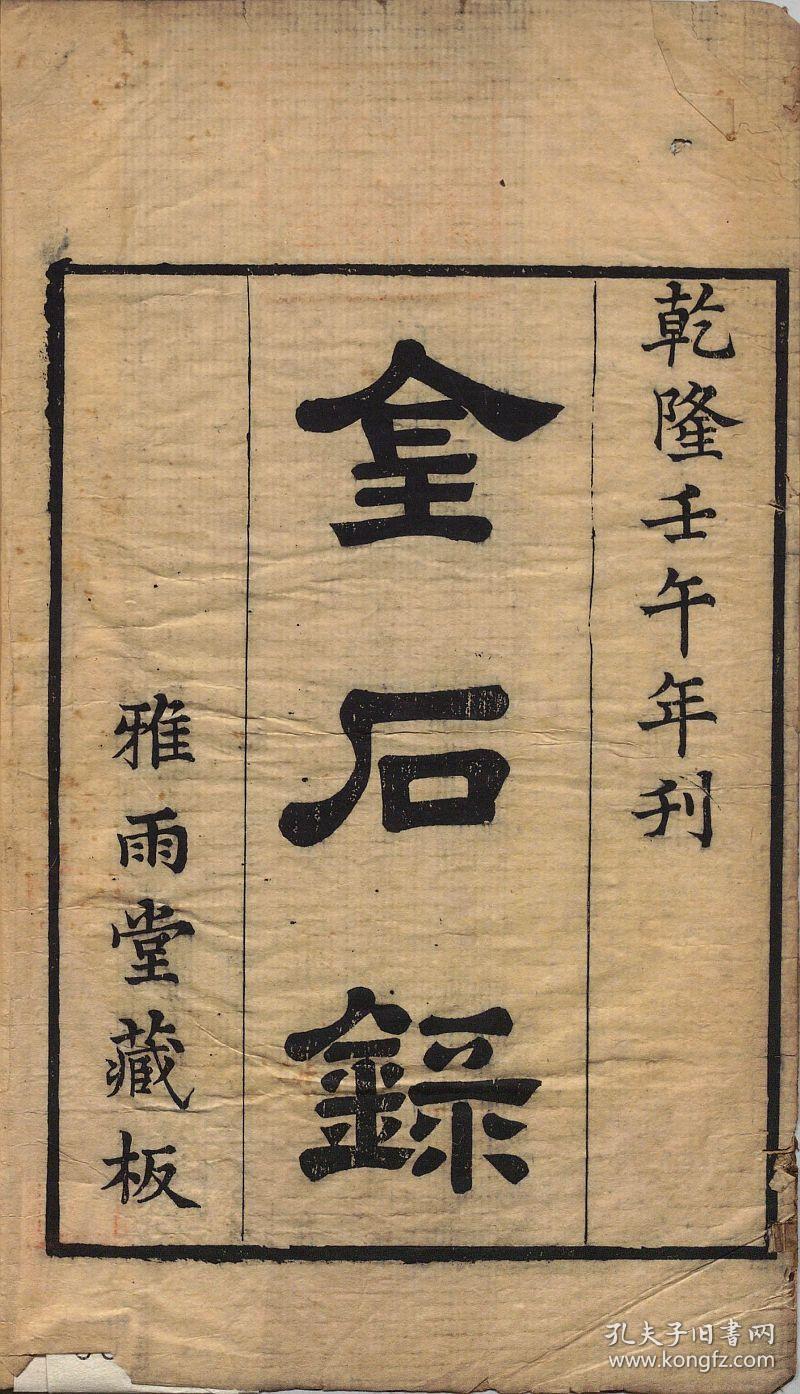 乾隆壬午年刊
金石錄
雅雨堂藏板
孔夫子旧书网
www.kongfz.com